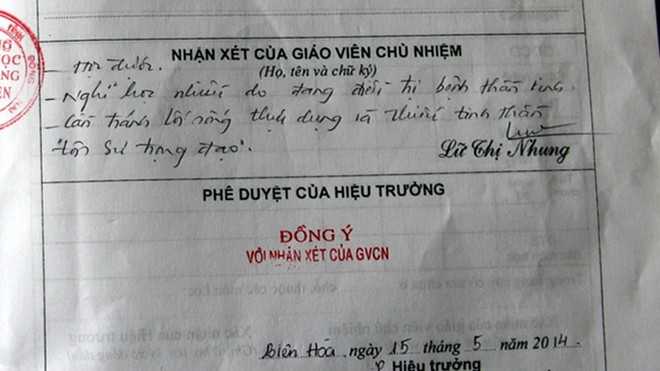 NHẬN XÉT CỦA GIÁO VIÊN CHỦ NHIỆM
(Họ, tên và chữ ký)
- Nghỉ học nhiều do đang điều trị bệnh thần kinh.
- Cần tránh lối sống thực dụng và thiếu tinh thần
"tôn sư trọng đạo".
Lữ Thị Nhung
PHÊ DUYỆT CỦA HIỆU TRƯỞNG
ĐỒNG Ý
VỚI NHẬN XÉT CỦA GVCN
Biên Hòa, ngày 15 tháng 5 năm 2014
Hiệu trưởng